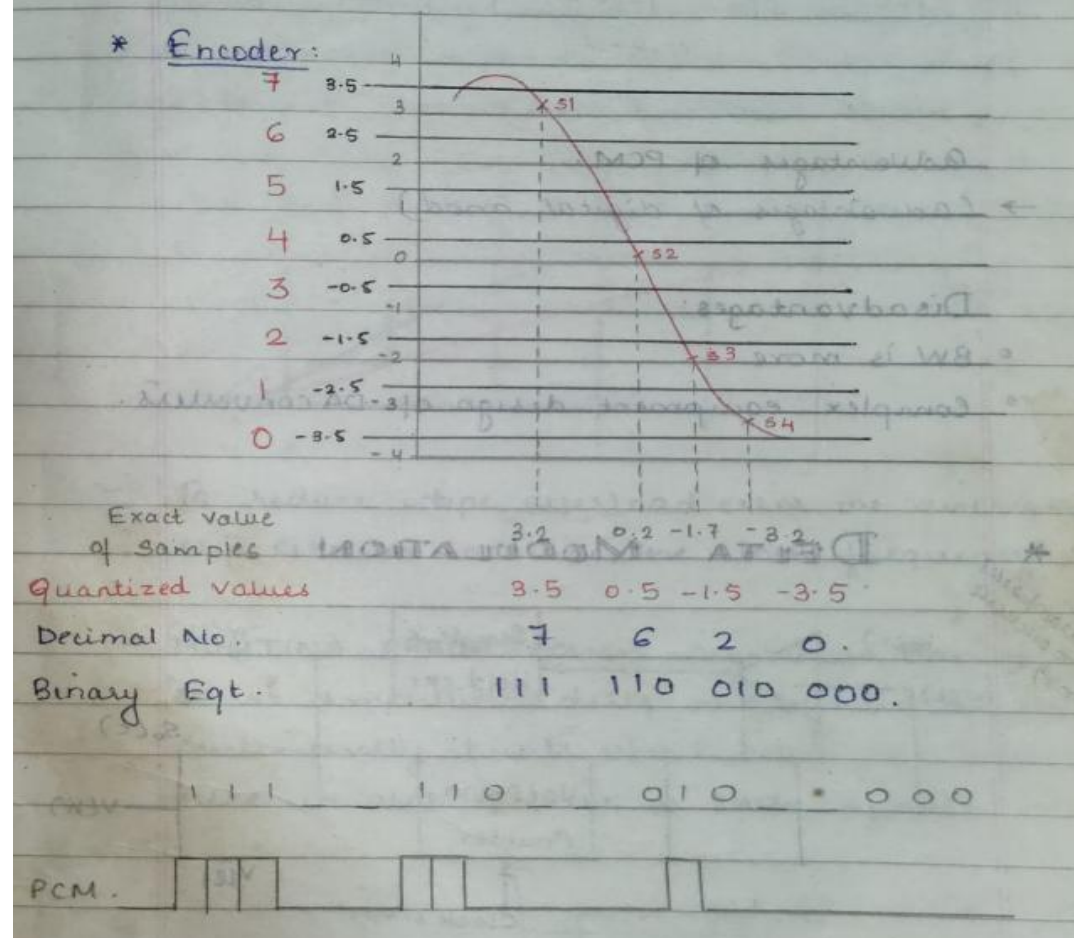 * Encoder:
4
7 3.5
3 S1
6 2.5
2
5 1.5
4 0.5
0 S2
3 -0.5
-1
2 -1.5
-2 S3
1 -2.5
-3
0 -3.5 S4
-4
Exact value
of samples 3.2 0.2 -1.7 -3.2
Quantized values 3.5 0.5 -1.5 -3.5
Decimal No. 7 6 2 0.
Binary Eqt. 111 110 010 000.
111 _ _ 110 _ _ 010 _ • 000
PCM.